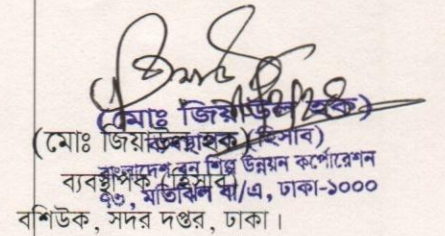 (মোঃ জিয়াউল হক)
ব্যবস্থাপক (হিসাব)
বাংলাদেশ বন শিল্প উন্নয়ন কর্পোরেশন
৭৩, মতিঝিল বা/এ, ঢাকা-১০০০
(মোঃ জিয়াউল হক)
ব্যবস্থাপক (হিসাব)
বশিউক, সদর দপ্তর, ঢাকা।